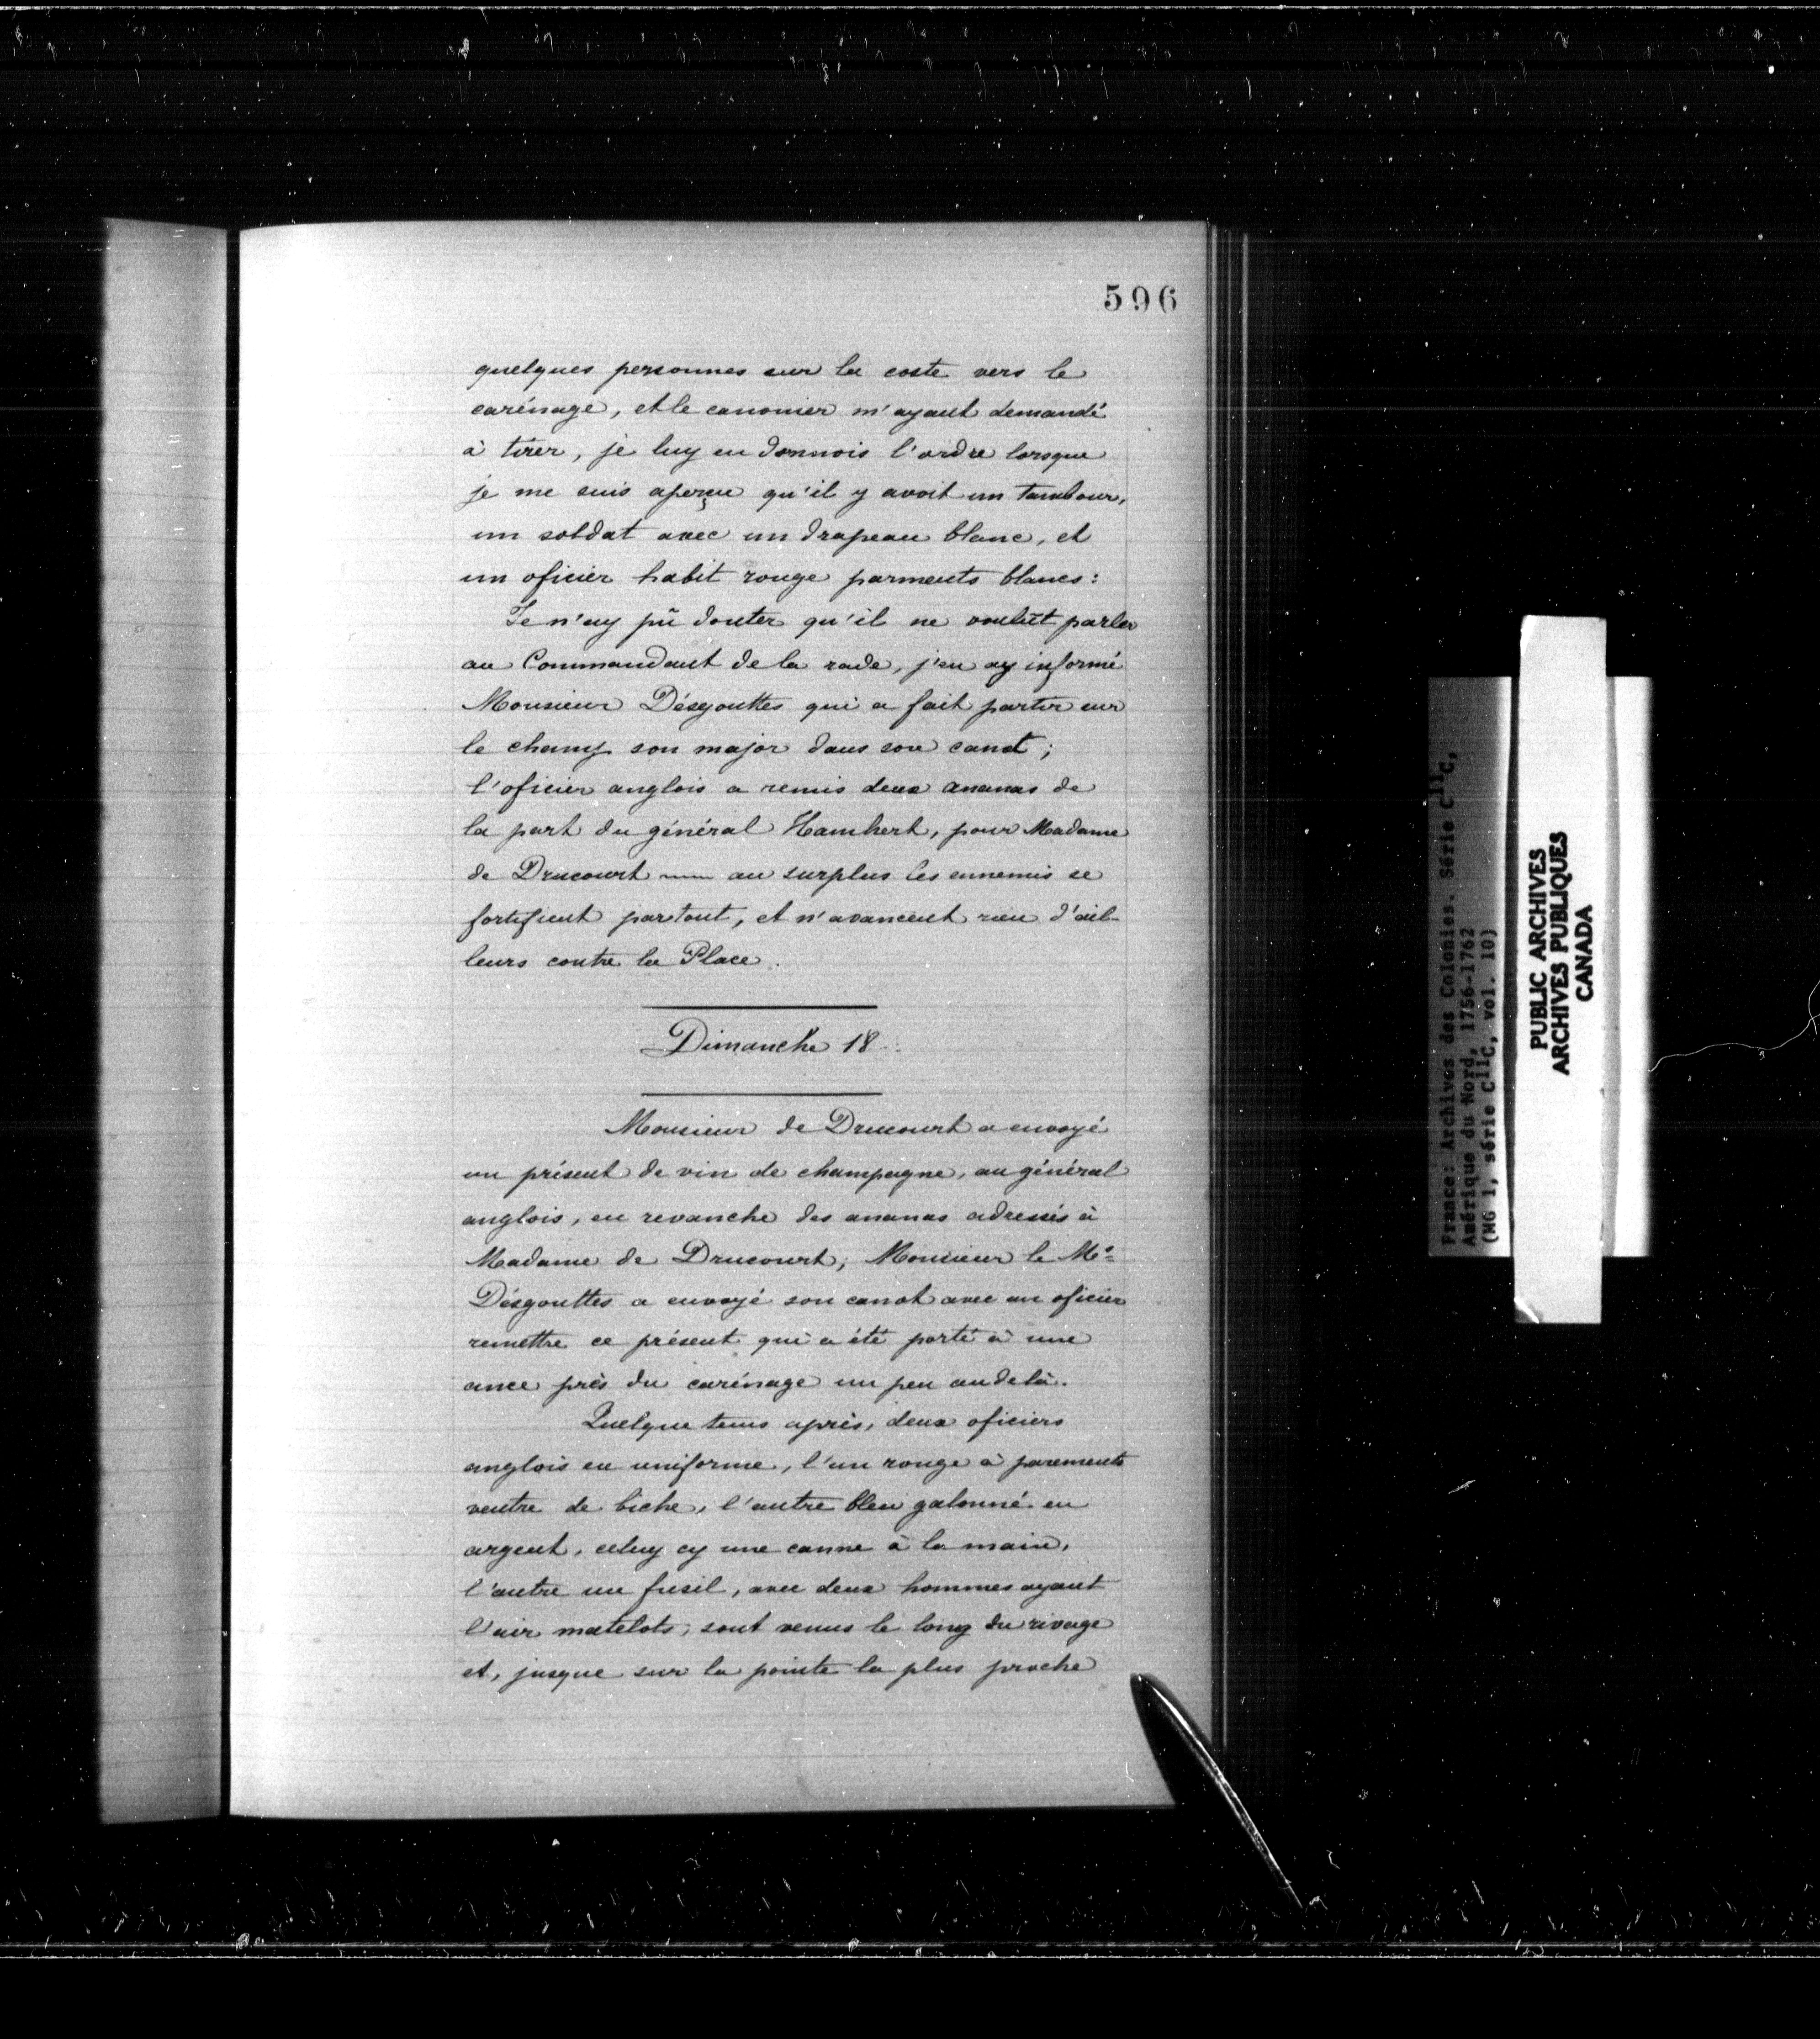 596
quelques personnes sur la coste vers le
carénage, et le canonier m'ayant demandé
à tirer, je luy en donnois l'ordre lorsque
je me suis aperçu qu'il y avoit un tambour,
un soldat avec un drapeau blanc, et
un oficier habit rouge parments blancs:
Je n'ay pû douter qu'il ne voulût parler
au Commandant de la rade, j'en ay informé
Monsieur Désgouttes qui a fait partir sur
le champ son major dans son canot;
l'oficier anglois a remis deux ananas de
la part du général Hamhert, pour Madame
de Drucourt — au surplus les ennemis se
fortifient partout, et n'avancent rien d'ail-
leurs contre la Place.
Dimanche 18.
Monsieur de Drucourt a envoyé
un présent de vin de champagne, au général
anglois, en revanche des ananas adressés à
Madame de Drucourt; Monsieur le Mis
Désgouttes a envoyé son canot avec un oficier
remettre ce présent qui a été porté à une
ance près du carénage un peu au delà.
Quelque tems après, deux oficiers
anglois en uniforme, l'un rouge à parements
ventre de biche, l'autre bleu galonné en
argent, celuy cy une canne à la main,
l'autre un fusil, avec deux hommes ayant
l'air matelots, sont venus le long du rivage
et, jusque sur la pointe la plus proche
France: Archives des Colonies. Série C11C,
Amérique du Nord, 1756-1762
(MG 1, série C11C, vol. 10)
PUBLIC ARCHIVES
ARCHIVES PUBLIQUES
CANADA